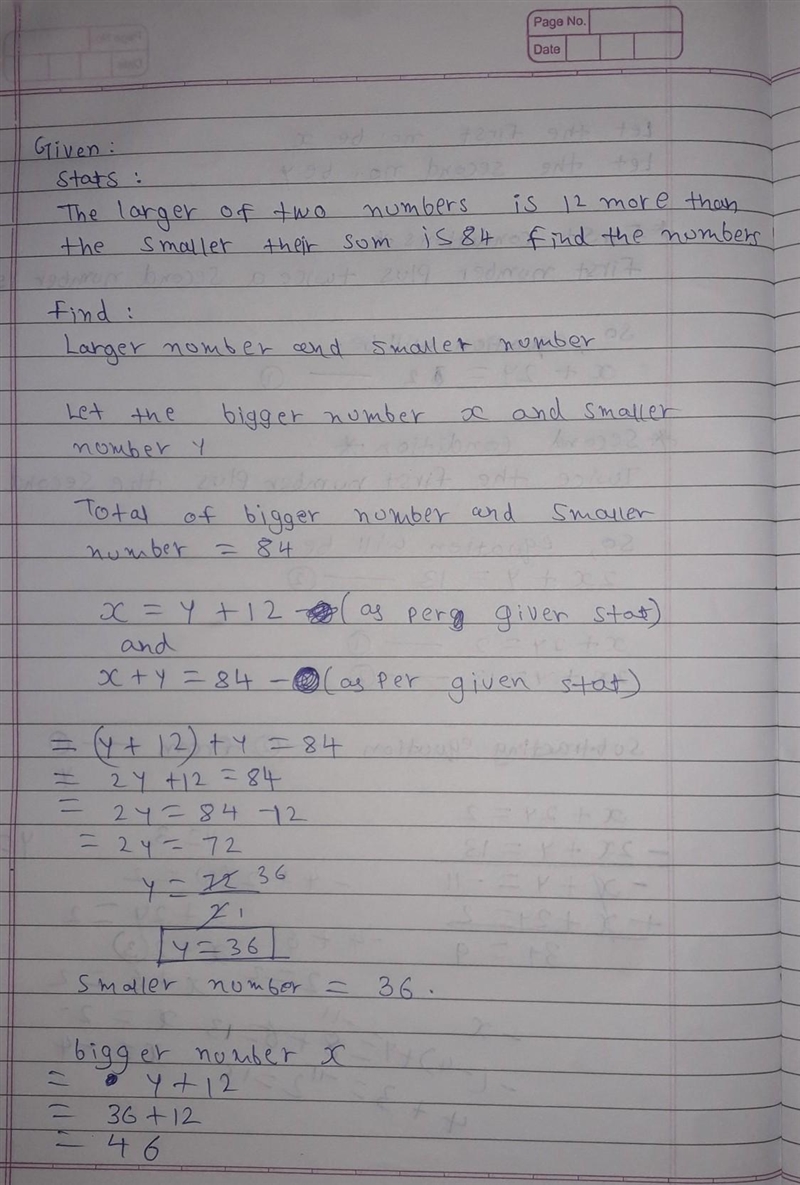 Page No.
Date
Given:
Stats:
The larger of two numbers is 12 more than
the smaller their som is 84 find the numbers
Find:
Larger nomber and smaller nomber
Let the bigger nomber x and smaller
nomber y
Total of bigger nomber and smaller
number = 84
x = y + 12 - (as per given stat)
and
x + y = 84 - (as per given stat)
= (y + 12) + y = 84
= 2y + 12 = 84
= 2y = 84 - 12
= 2y = 72
y = 72 36
2 1
y = 36
Smaller nomber = 36.
bigger nomber x
= y + 12
= 36 + 12
= 46